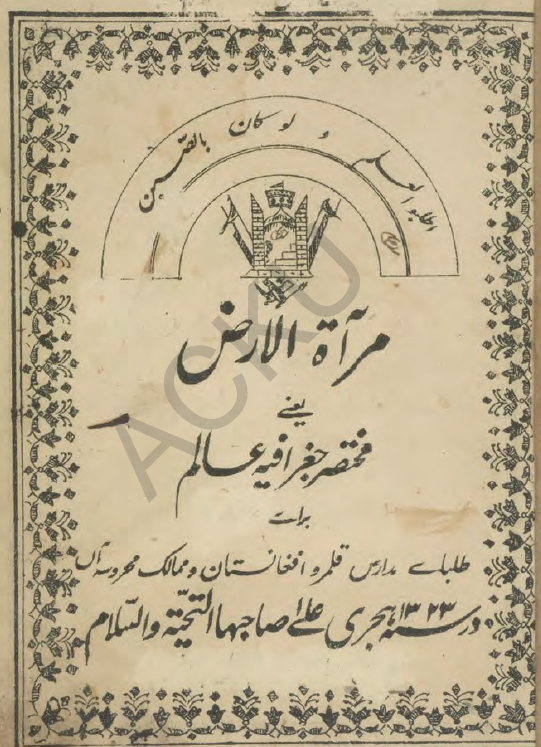 اطلبوا العلم و لو کان بالصّین
مرآة الارض
یعنے
مختصر جغرافیه عالم
براے
طلباے مدارس قلمرو افغانستان و ممالک محروسه آن
در سنه ۱۳۲۳ هجری علےٰ صاحبها التحیّة والسّلام
ACKU